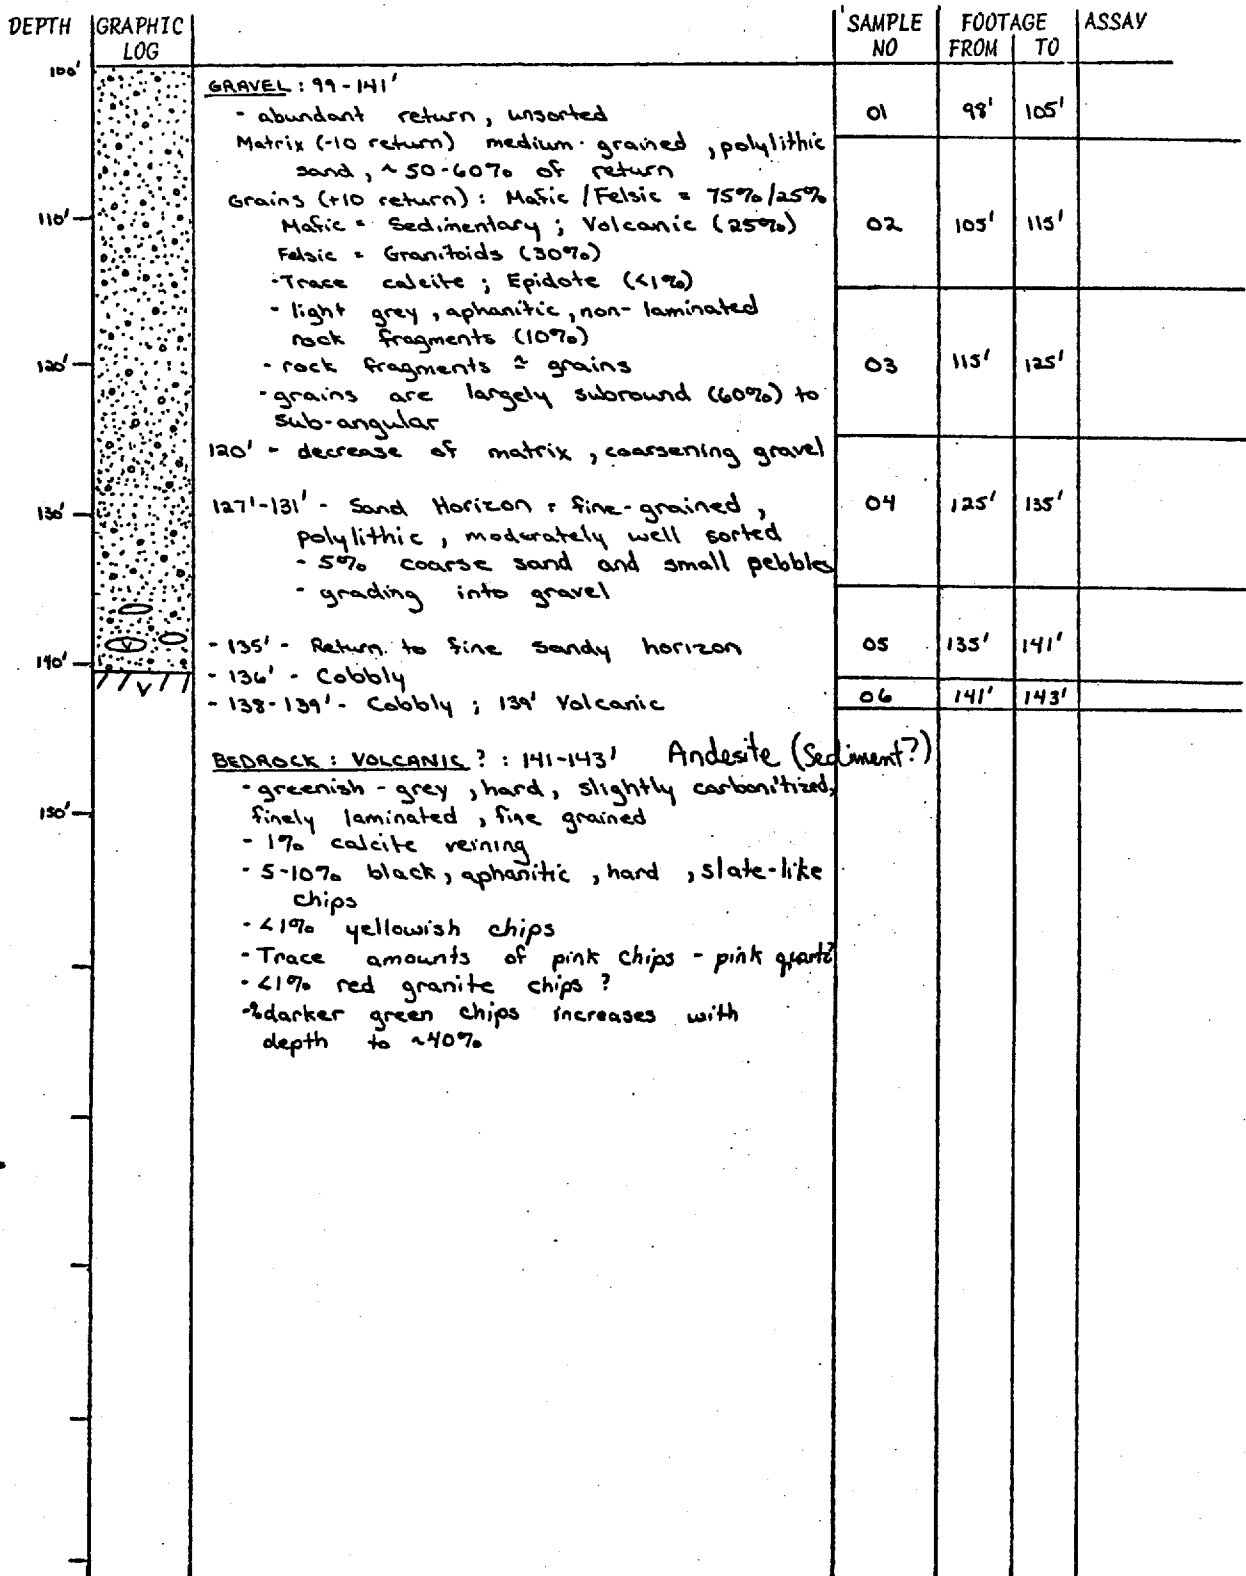 DEPTH GRAPHIC LOG SAMPLE NO FOOTAGE FROM TO ASSAY
100'
GRAVEL : 99-141'
- abundant return, unsorted
01 98' 105'
Matrix (-10 return) medium-grained, polylithic
sand, ~50-60% of return
Grains (+10 return) : Mafic / Felsic = 75%/25%
110'
Mafic = Sedimentary ; Volcanic (25%)
02 105' 115'
Felsic = Granitoids (30%)
- Trace calcite ; Epidote (<1%)
- light grey, aphanitic, non-laminated
rock fragments (10%)
120'
- rock fragments ≃ grains
03 115' 125'
- grains are largely subround (60%) to
sub-angular
120' - decrease of matrix, coarsening gravel
130'
127'-131' - Sand Horizon = fine-grained,
04 125' 135'
polylithic, moderately well sorted
- 5% coarse sand and small pebbles
- grading into gravel
V
- 135' - Return to fine sandy horizon
05 135' 141'
140'
- 136' - Cobbly
V
06 141' 143'
- 138-139' - Cobbly ; 139' Volcanic
BEDROCK : VOLCANIC ? : 141-143' Andesite (Sediment?)
- greenish-grey, hard, slightly carbonitized,
150'
finely laminated, fine grained
- 1% calcite veining
- 5-10% black, aphanitic, hard, slate-like
chips
- <1% yellowish chips
- Trace amounts of pink chips - pink quartz
- <1% red granite chips ?
- % darker green chips increases with
depth to ~40%